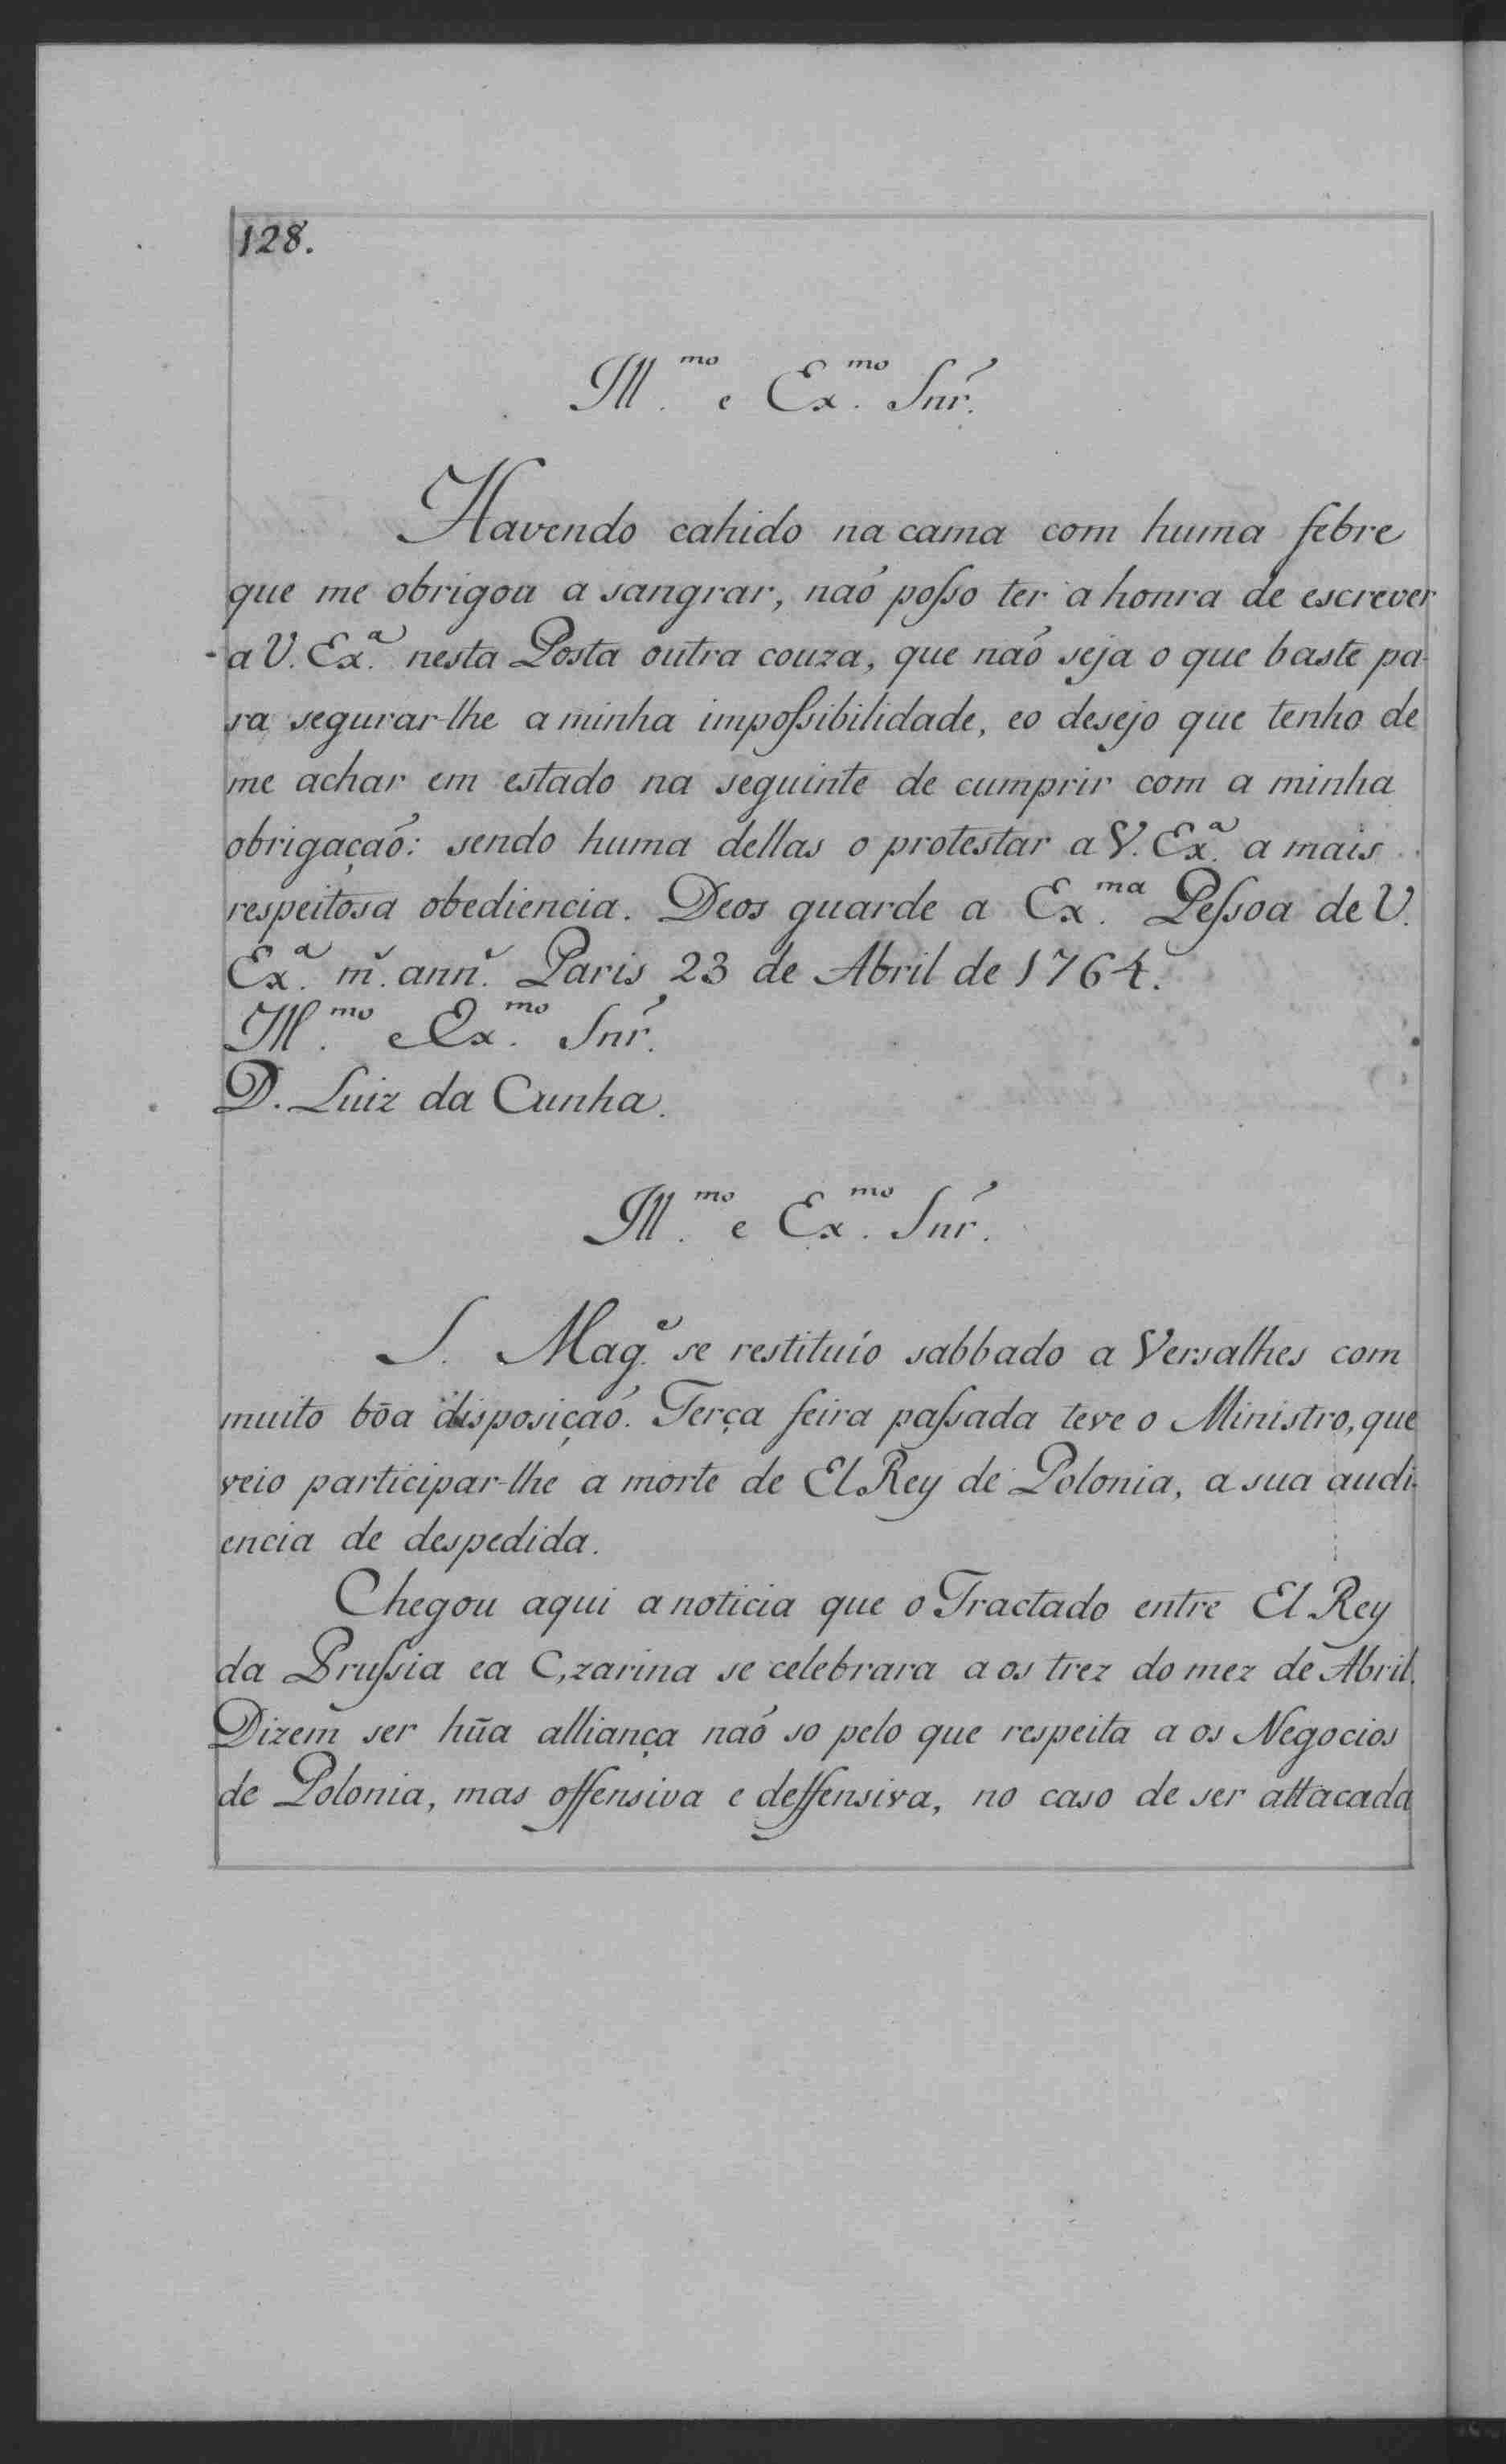 128.
Ill.mo e Ex.mo Snr.
Havendo cahido na cama com huma febre
que me obrigou a sangrar, naó poſso ter a honra de escrever
a V. Ex.a nesta Posta outra couza, que naó seja o que baste pa-
ra segurar-lhe a minha impoſsibilidade, eo desejo que tenho de
me achar em estado na seguinte de cumprir com a minha
obrigaçaó: sendo huma dellas o protestar a V. Ex.a a mais
respeitosa obediencia. Deos guarde a Ex.ma Peſsoa de V.
Ex.a m.s ann.s Paris 23 de Abril de 1764.
Ill.mo e Ex.mo Snr.
D. Luiz da Cunha.
Ill.mo e Ex.mo Snr.
S. Mag.e se restituío sabbado a Versalhes com
muito bōa disposiçaó. Terça feira paſsada teve o Ministro, que
veio participar-lhe a morte de El Rey de Polonia, a sua audi-
encia de despedida.
Chegou aqui a noticia que o Tractado entre El Rey
da Pruſsia ea C,zarina se celebrara a os trez do mez de Abril.
Dizem ser hūa alliança naó so pelo que respeita a os Negocios
de Polonia, mas offensiva e deffensiva, no caso de ser attacada